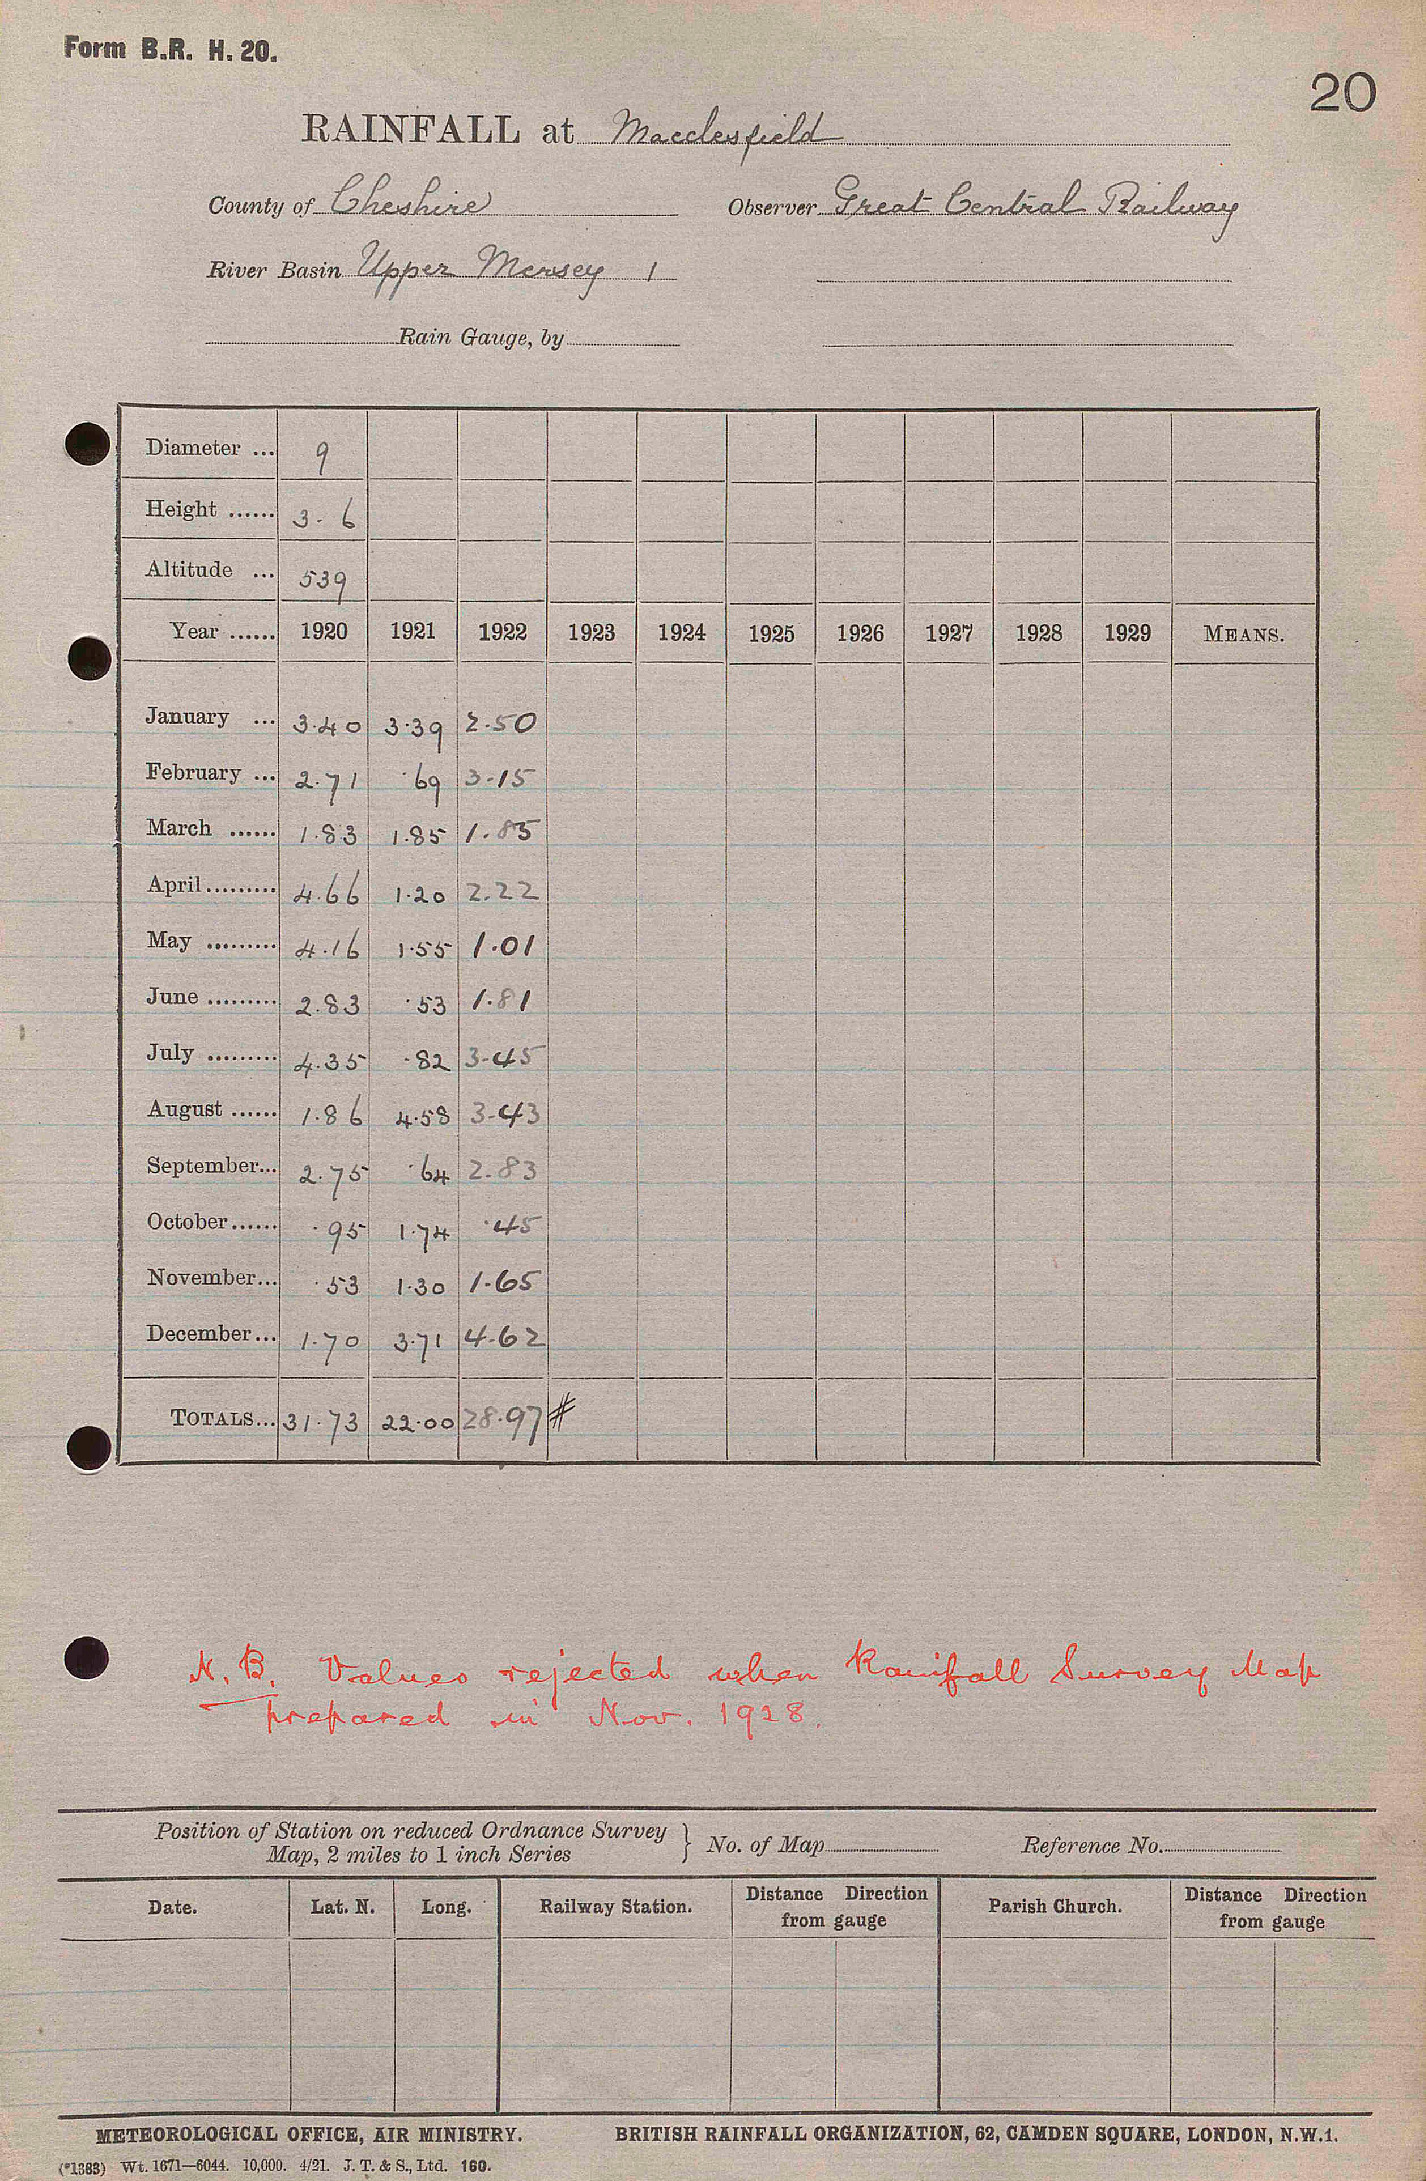 Form B.R. H. 20.
20
RAINFALL at Macclesfield
County of Cheshire Observer Great Central Railway
River Basin Upper Mersey 1
Rain Gauge, by
Diameter ... 9
Height ...... 3. 6
Altitude ... 539
Year ...... 1920 1921 1922 1923 1924 1925 1926 1927 1928 1929 MEANS.
January ... 3.40 3.39 2.50
February ... 2.71 .69 3.15
March ...... 1.83 1.85 1.85
April ......... 4.66 1.20 2.22
May ......... 4.16 1.55 1.01
June ......... 2.83 .53 1.81
July ......... 4.35 .82 3.45
August ...... 1.86 4.58 3.43
September... 2.75 .64 2.83
October...... .95 1.74 .45
November... .53 1.30 1.65
December... 1.70 3.71 4.62
TOTALS... 31.73 22.00 28.97 #
N.B. Values rejected when Rainfall Survey Map
prepared in Nov. 1928.
Position of Station on reduced Ordnance Survey
Map, 2 miles to 1 inch Series } No. of Map Reference No.
Date. Lat. N. Long. Railway Station. Distance Direction from gauge Parish Church. Distance Direction from gauge
METEOROLOGICAL OFFICE, AIR MINISTRY. BRITISH RAINFALL ORGANIZATION, 62, CAMDEN SQUARE, LONDON, N.W.1.
(*1383) Wt. 1671—6044. 10,000. 4/21. J. T. & S., Ltd. 160.